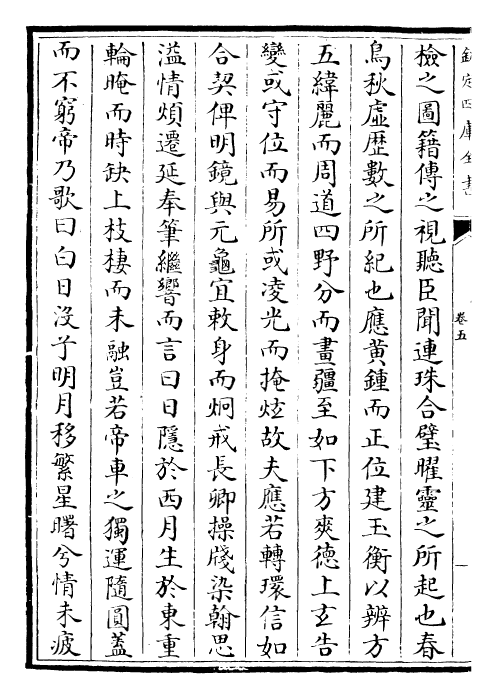 欽定四庫全書
卷五
檢之圖籍傳之視聽臣聞連珠合璧曜靈之所起也春
鳥秋虛歴數之所紀也應黄鍾而正位建玉衡以辨方
五緯麗而周道四野分而畫疆至如下方爽德上玄告
變或守位而易所或凌光而掩炫故夫應若轉環信如
合契俾明鏡與元龜宜敕身而炯戒長卿操牋染翰思
溢情煩遷延奉筆繼響而言曰日隱於西月生於東重
輪晻而時缺上枝棲而未融豈若帝車之獨運隨圓蓋
而不窮帝乃歌曰白日没兮明月移繁星曙兮情未疲